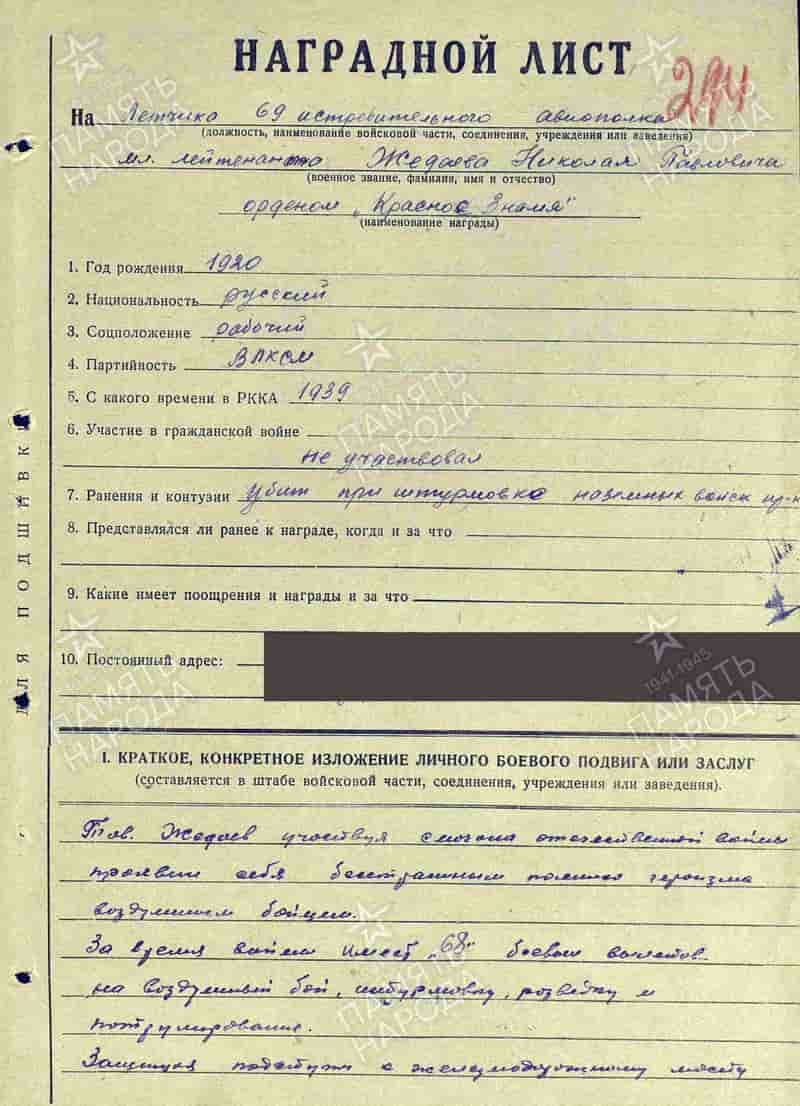 НАГРАДНОЙ ЛИСТ
294
На Летчика 69 истребительного авиополка
(должность, наименование войсковой части, соединения, учреждения или заведения)
мл. лейтенанта Жедаева Николая Павловича
(военное звание, фамилия, имя и отчество)
орденом „Красное Знамя"
(наименование награды)
1. Год рождения 1920
2. Национальность русский
3. Соцположение рабочий
4. Партийность ВЛКСМ
5. С какого времени в РККА 1939
6. Участие в гражданской войне
не участвовал
7. Ранения и контузии Убит при штурмовке наземных войск пр-к
8. Представлялся ли ранее к награде, когда и за что
9. Какие имеет поощрения и награды и за что
10. Постоянный адрес:
ДЛЯ ПОДШИВКИ
I. КРАТКОЕ, КОНКРЕТНОЕ ИЗЛОЖЕНИЕ ЛИЧНОГО БОЕВОГО ПОДВИГА ИЛИ ЗАСЛУГ
(составляется в штабе войсковой части, соединения, учреждения или заведения).
Тов. Жедаев участвуя с начала отечественной войны
проявил себя бесстрашным полным героизма
воздушным бойцом.
За время войны имеет „68" боевых вылетов
на воздушный бой, штурмовку, розведку и
потрулирование.
Защищая подступы к железнодорожному мосту
ПАМЯТЬ НАРОДА
1941-1945